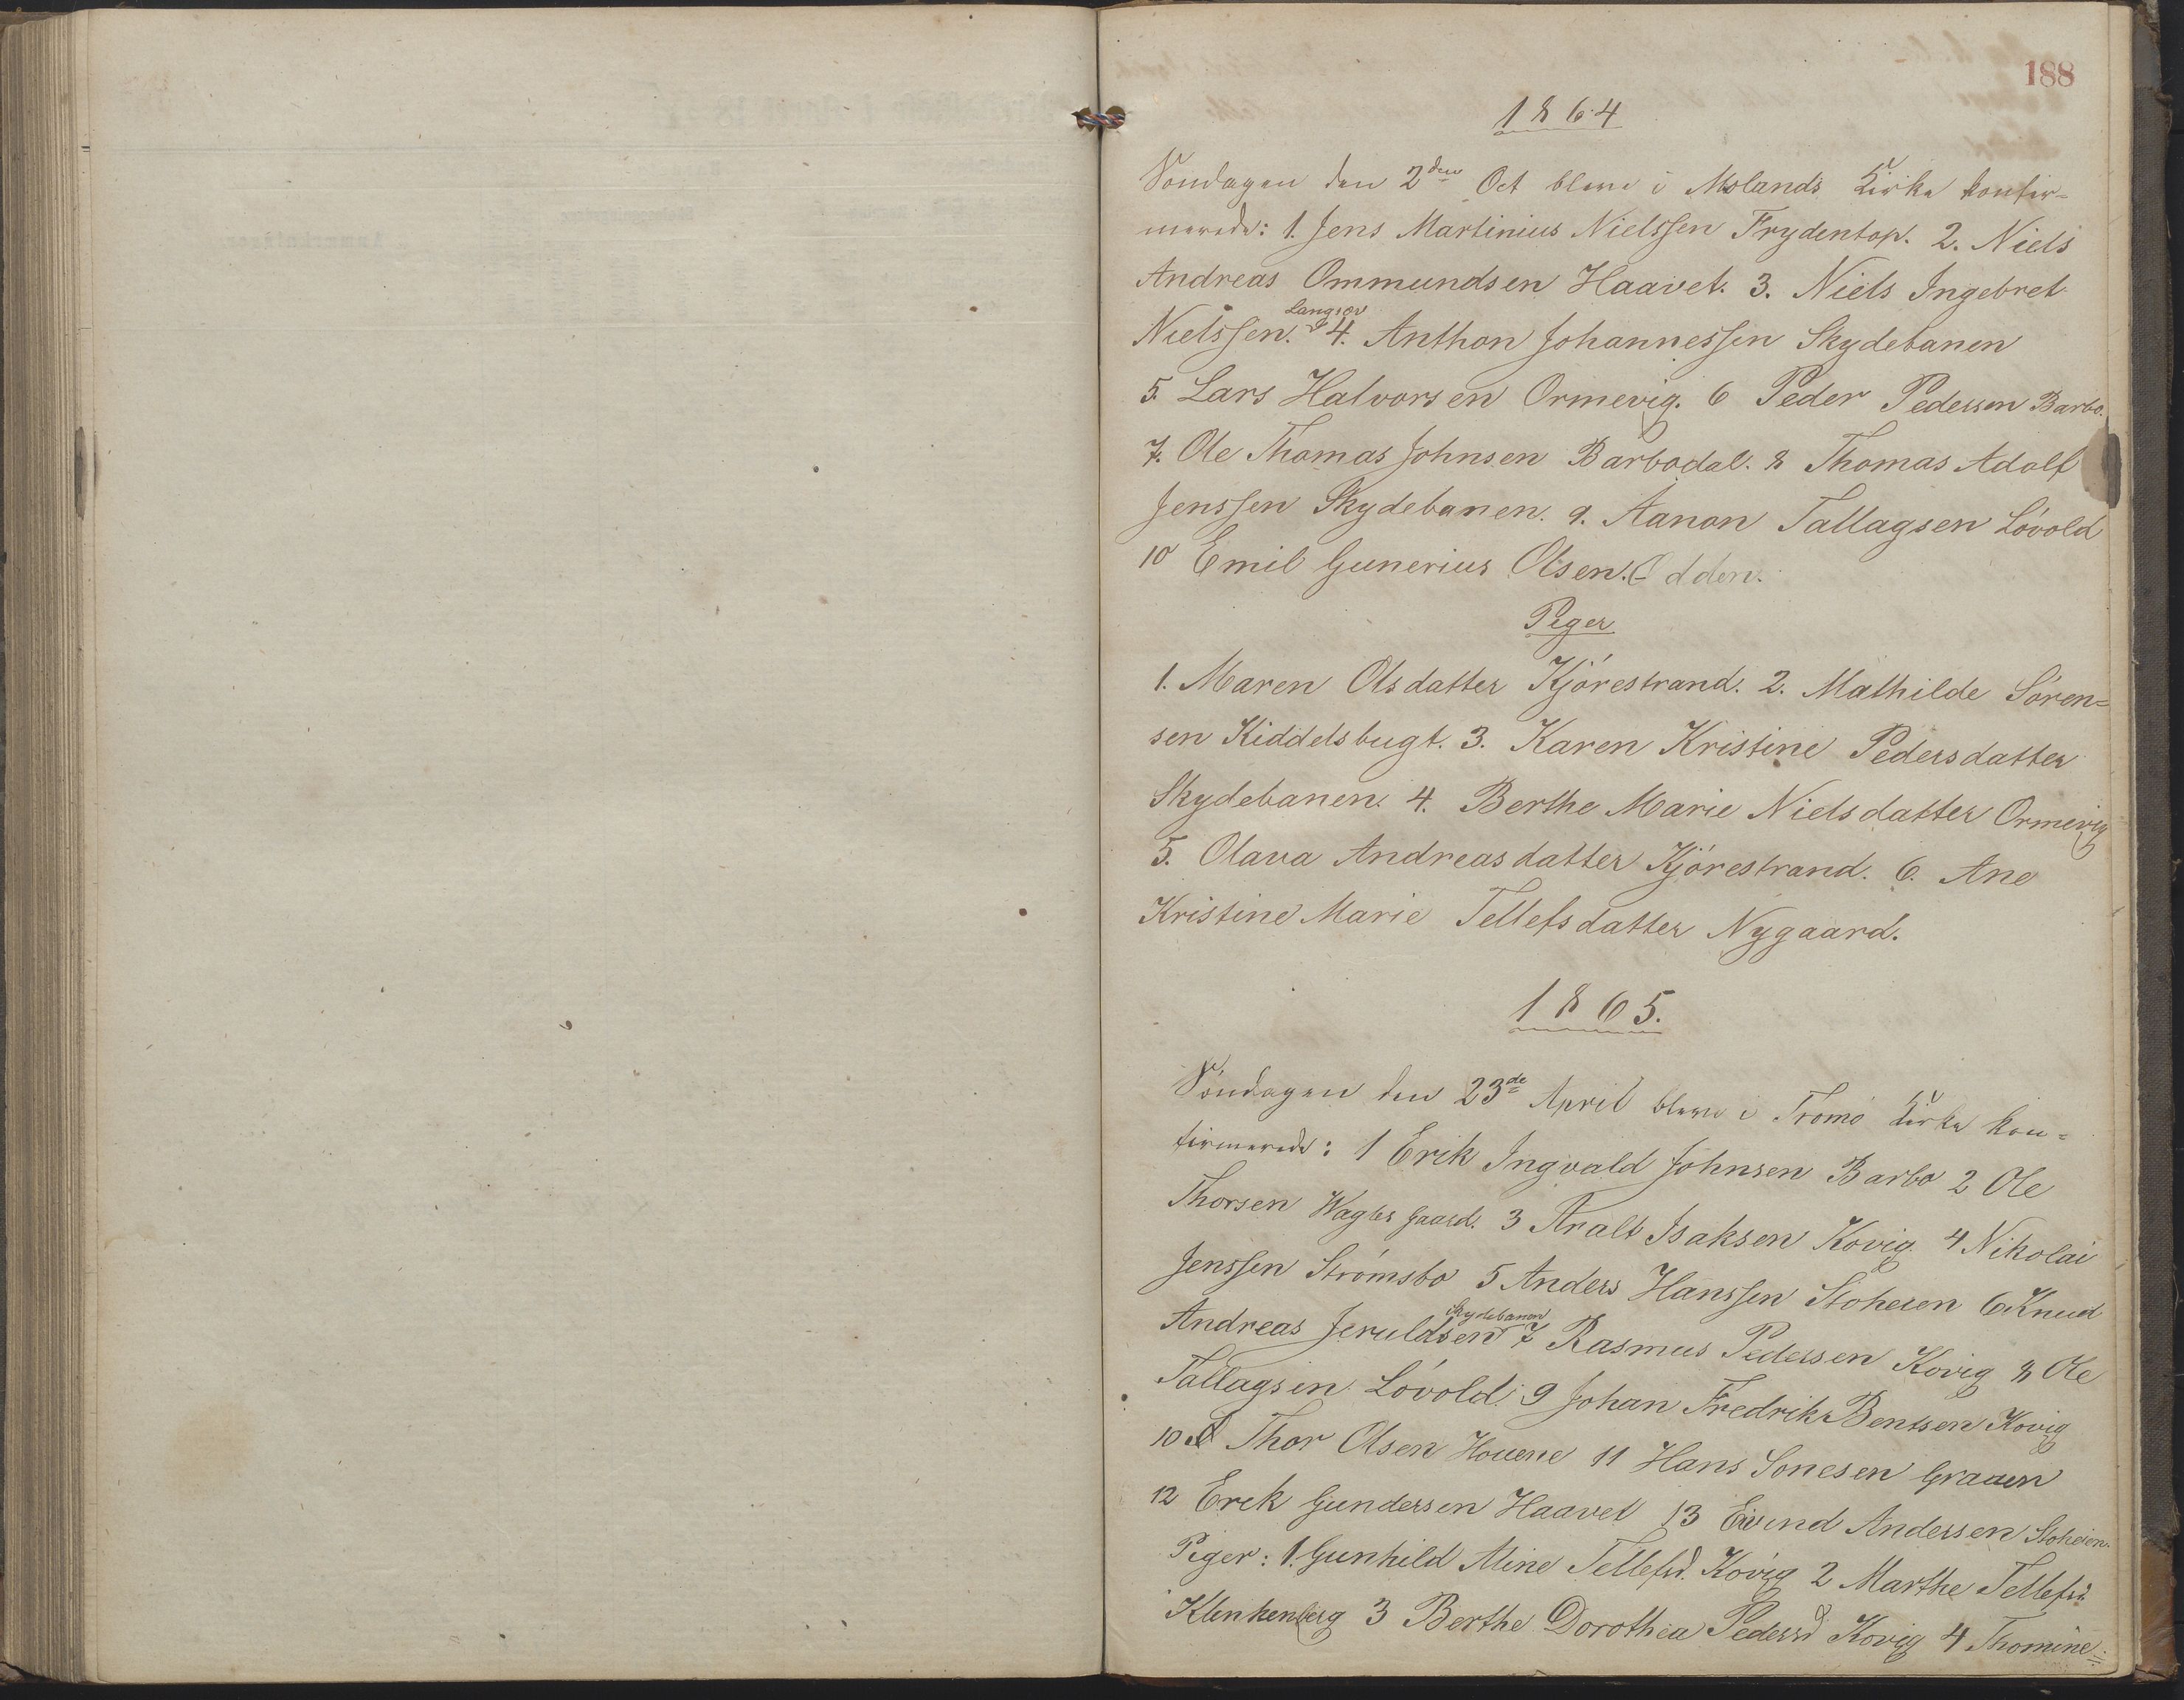 188
1864
Søndagen den 2den Oct bleve i Molands Kirke konfir=
merede: 1. Jens Martinius Nielssen Frydentop. 2. Niels
Andreas Ommundsen Haavet. 3. Niels Ingebret
Nielssen. Langsæv 4. Anthon Johannessen Skydebanen
5. Lars Halvorsen Ormevig. 6 Peder Pedersen Barbo.
7. Ole Thomas Johnsen Barbodal. 8 Thomas Adolf
Jenssen Skydebanen. 9. Aanon Tallagsen Lóvold
10 Emil Gunerius Olsen. Odden.
Piger
1. Maren Olsdatter Kjórestrand. 2. Mathilde Sóren=
sen Kiddelsbugt. 3. Karen Kristine Pedersdatter
Skydebanen. 4. Berthe Marie Nielsdatter Ormevig
5. Olava Andreasdatter Kjórestrand. 6. Ane
Kristine Marie Tellefsdatter Nygaard.
1865.
Søndagen den 23de April bleve i Tromó Kirke kon=
firmerede: 1 Erik Ingvald Johnsen Barbo 2 Ole
Thorsen Wagtes gaard. 3 Aralt Isaksen Kovig. 4 Nikolai
Jenssen Strómsbo 5 Anders Hanssen Stoheien 6 Knud
Andreas Jeruldsen Skydebanen 7 Rasmus Pedersen Kovig 8 Ole
Tallagsen Lóvold 9 Johan Fredrik Bentsen Kovig
10 Thor Olsen Houene 11 Hans Sonesen Graaen
12 Erek Gundersen Haavet 13 Eivind Andersen Stoheien.
Piger: 1. Gunhild Aline Tellefsd. Kóvig 2 Marthe Tellefsd.
Klenkenberg 3 Berthe Dorothea Pedersd Kovig 4 Thomine